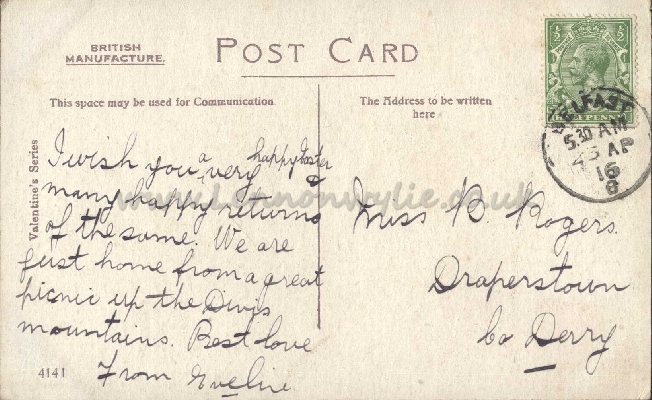 BRITISH
MANUFACTURE.
POST CARD
This space may be used for Communication.
The Address to be written
here
Valentine's Series
I wish you a very happy Easter &
many happy returns
of the same. We are
just home from a great
picnic up the Divis
mountains. Best love
From Eveline
4141
Miss B. Rogers.
Draperstown
Co Derry
½ ½
HALFPENNY
BELFAST
5.30 AM
AP
16
8
www.Lennonwylie.co.uk